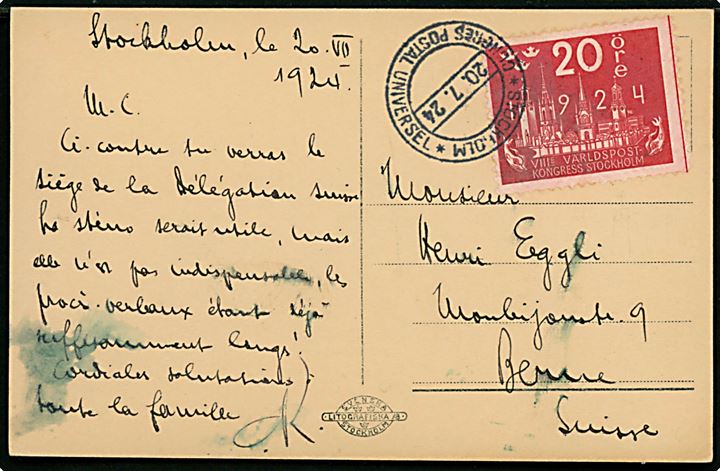 Stockholm, le 20. VII
1924.
M. C.
Ci-contre tu verras le
siège de la Délégation suisse
La sténo serait utile, mais
elle n'est pas indispensable, les
procès-verbaux étant déjà
suffisamment longs!
Cordiales salutations à
toute la famille
K.
SVENSKA
LITOGRAFISKA A/B
STOCKHOLM
STOCKHOLM
CONGRES POSTAL UNIVERSEL
20.7.24
20 öre
1924
VIIIE VÄRLDSPOST
KONGRESS STOCKHOLM
Monsieur
Henri Eggli
Monbijoustr. 9
Berne
Suisse